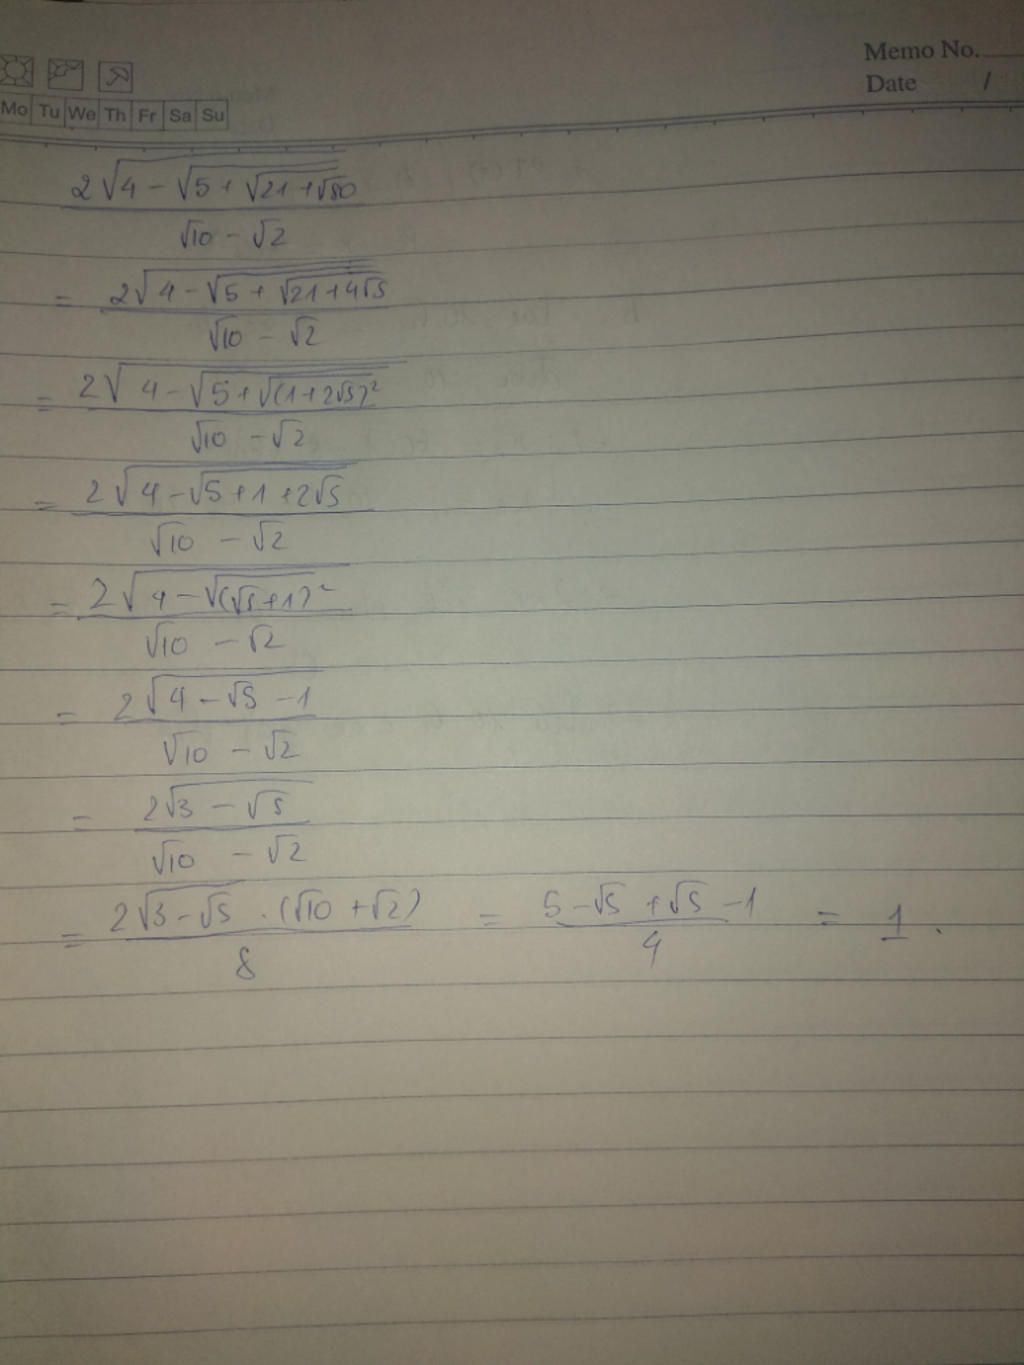 Memo No.
Date /
Mo Tu We Th Fr Sa Su
2√(4 - √(5 + √(21 + √80)))
√10 - √2
= 2√(4 - √(5 + √(21 + 4√5)))
√10 - √2
= 2√(4 - √(5 + √((1 + 2√5)²)))
√10 - √2
= 2√(4 - √(5 + 1 + 2√5))
√10 - √2
= 2√(4 - √((√5 + 1)²))
√10 - √2
= 2√(4 - √5 - 1)
√10 - √2
= 2√(3 - √5)
√10 - √2
= 2√(3 - √5) . (√10 + √2) = 5 - √5 + √5 - 1 = 1.
8 4